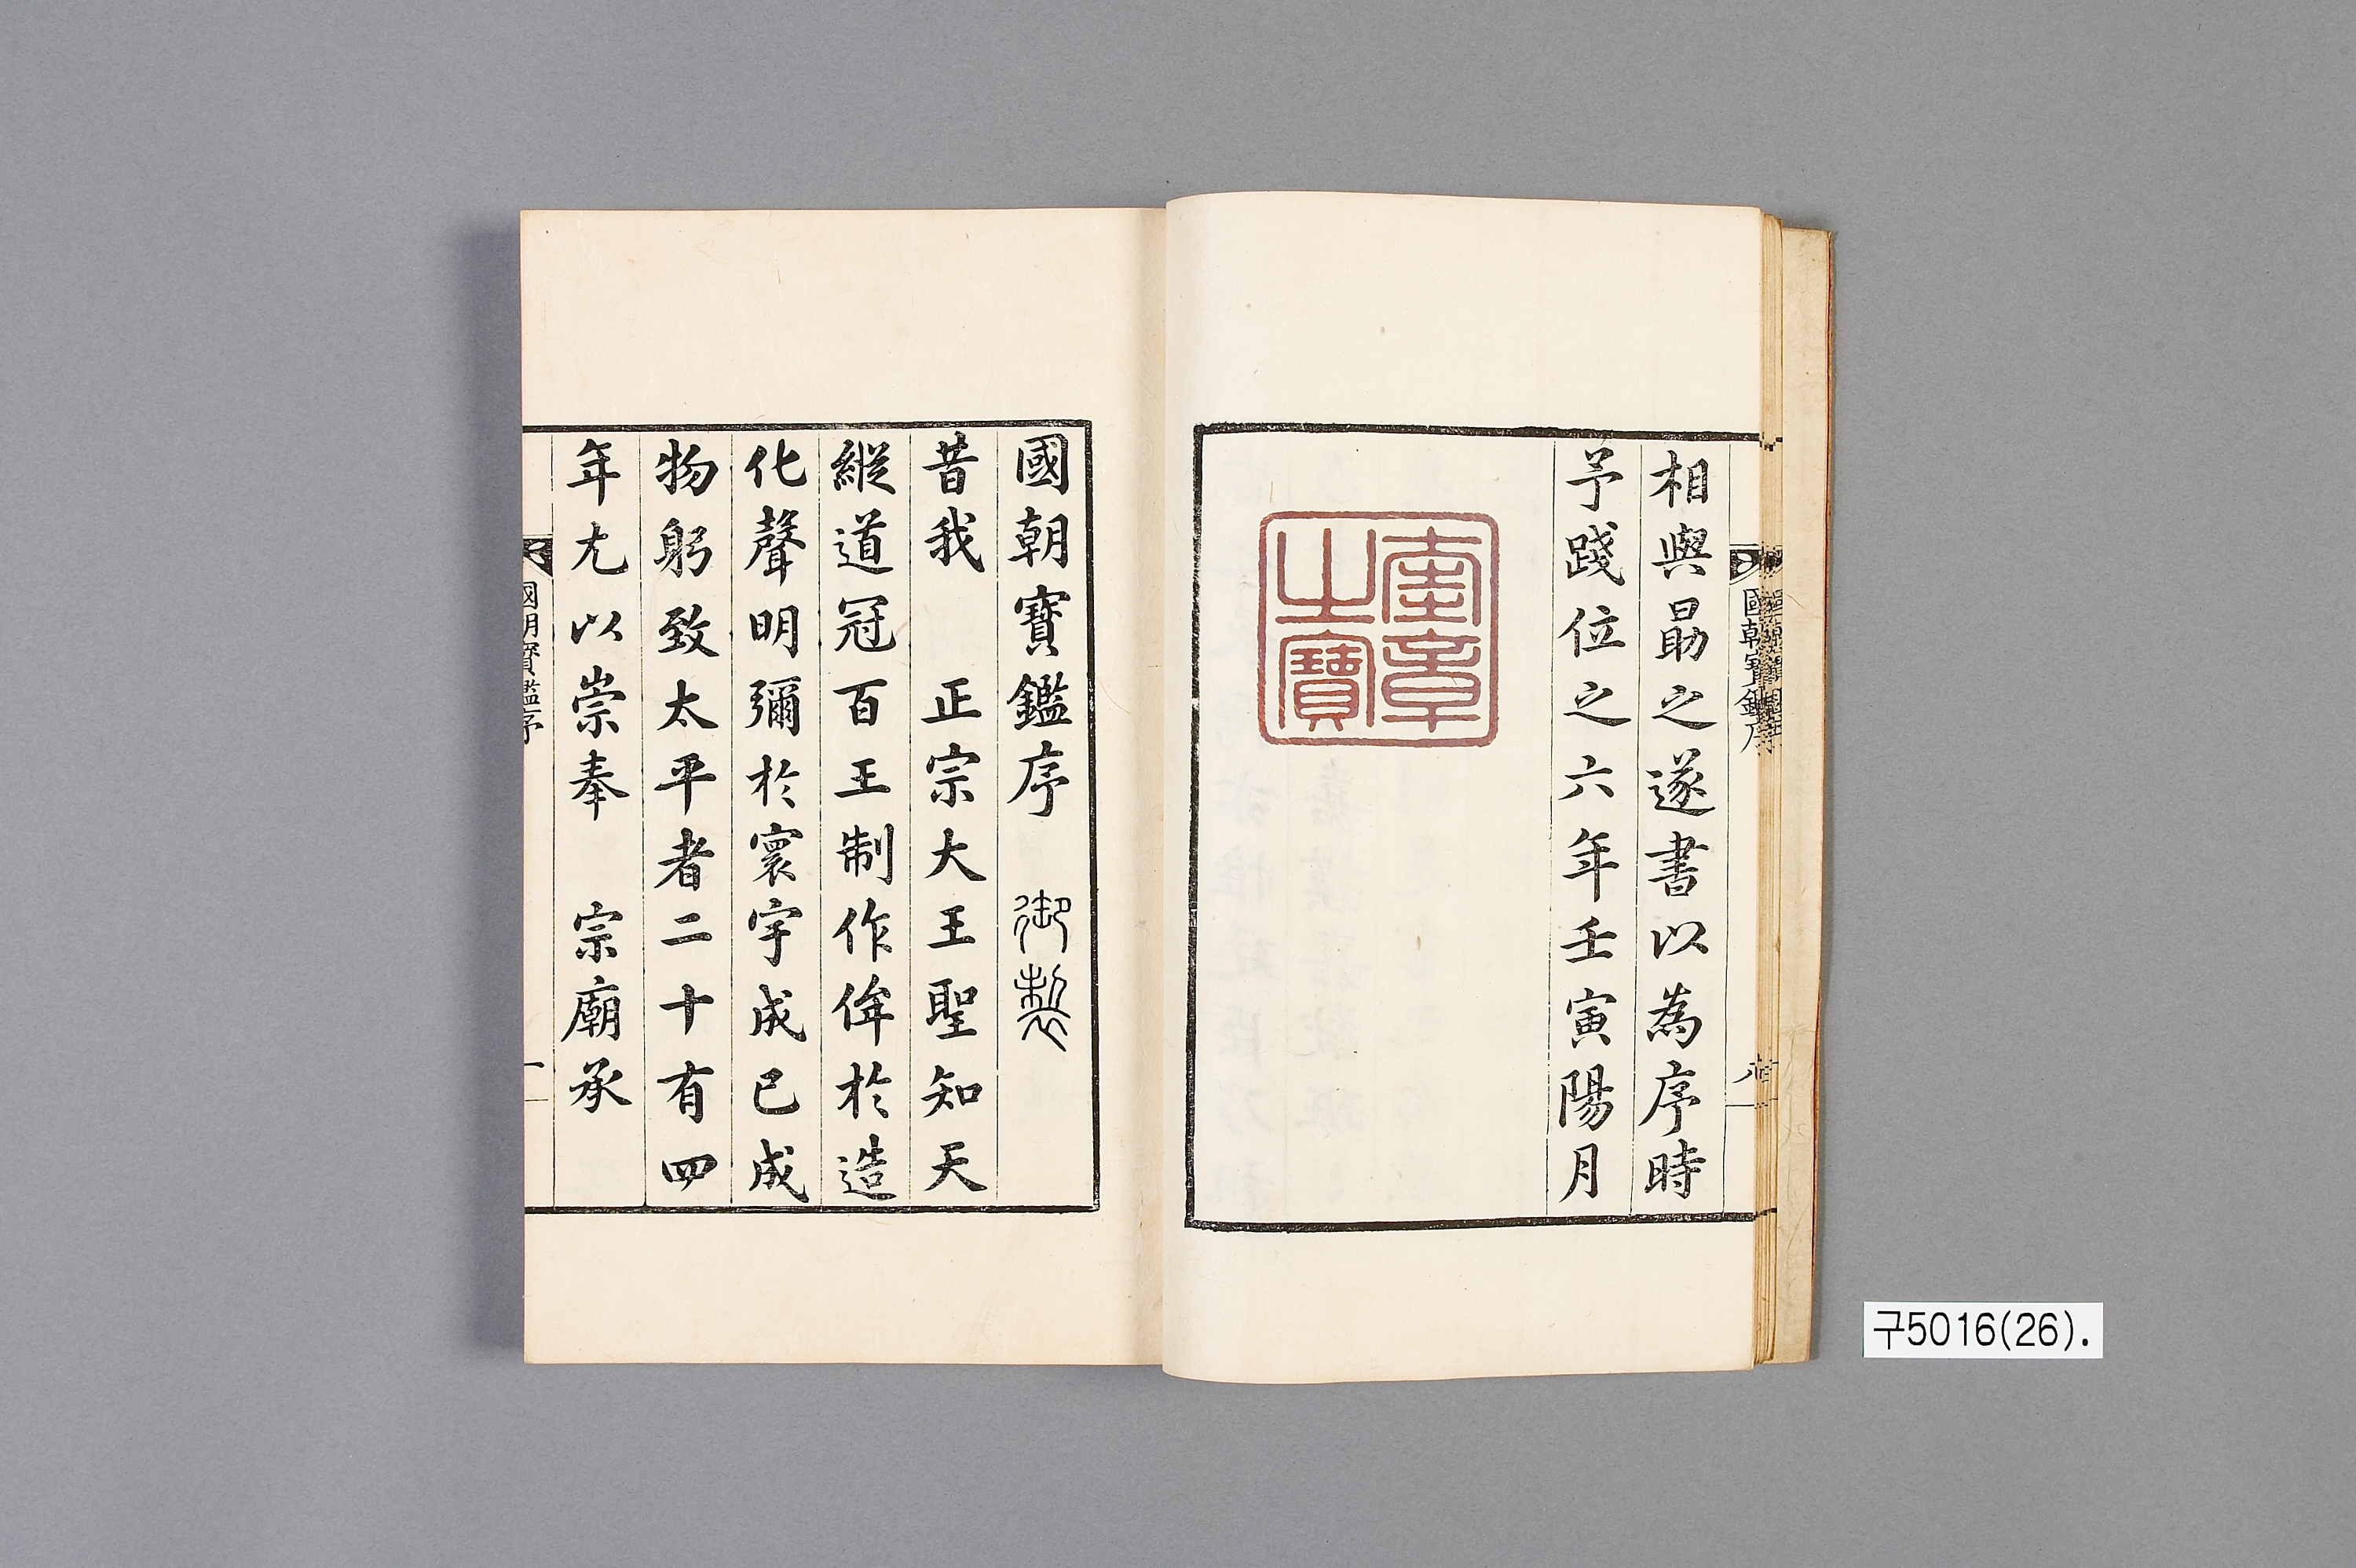 相與勗之遂書以為序時
予踐位之六年壬寅陽月
奎章
之寶
國朝寶鑑序
國朝寶鑑序 御製
昔我 正宗大王聖知天
縱道冠百王制作侔於造
化聲明彌於寰宇成已成
物躬致太平者二十有四
年尤以崇奉 宗廟承
國朝寶鑑序
一
구5016(26).